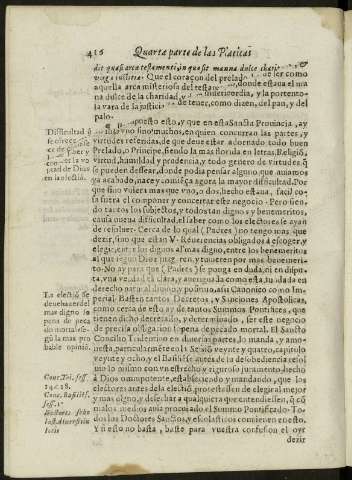 416 Quarta parte de las Platicas
dit quasi arca testamenti, in qua sit manna dulce
Que el coraçon del prelado ser como
aquella arca misteriosa del donde estaua el ma
na dulce de la charidad, y la portento
la vara de la justici de tener, como dizen, del pan, y del
palo.
supuesto esto, y que en esta Sancta Prouincia, ay
no vno sino muchos, en quien concurran las partes, y
virtudes referidas, de que deue estar adornado todo buen
Prelado, o Principe, siendo la mas florida en letras, Religiõ,
virtud, humildad y prudencia, y todo genero de virtudes, q̃
se pueden dessear, donde podia pensar alguno que auiamos
ya acabado, nace y comiẽça agora la mayor difficultad. Por
que sino vuiera mas que vno, o dos, hecho estaua, facil co
sa fuera el componer y concertar este negocio. Pero sien
do tantos los subjectos, y todos tan dignos y benemeritos,
causa nueua difficultad, el saber como los electores se ayan
de resoluer. Cerca de lo qual (Padres) no tengo mas que
dezir, sino que estan V. Reuerencias obligados a escoger, y
elegir, entre los dignos al mas digno, entre los benemeritos
al que segun mas bene meri
to. No ay para que (Padres) se ponga en duda, ni en dispu
ta, vna verdad tã clara, y aueriguada como esta, fundada en
derecho natural diuino y positiuo, assi Canonico como Im
perial. Basten tantos Decretos, y Sanctiones Apostolicas,
como cerca de esto ay de tantos Summos Pontifices, que
tienen dicho decretado, y determinado, ser este negocio
de precisa obligacion so pena de peccado mortal. El Sancto
Concilio Tridentino en diuersas partes, lo manda, y amo-
nesta, particularmente en la Sessiõ veynte y quatro, capitulo
veynte y ocho, y el Basiliẽse
mo lo mismo con vn estrecho y riguroso juramento, hecho
à Dios omnipotente, establesciendo y mandando, que los
electores antes dela electiõ prometiessen de elegir al mejor
y mas digno, y desechar a qualquiera que entendiessen, q̃ cõ
malos medios auia procurado el Summo Pontificado. To
dos los Doctores Sanctos, y escolasticos conuienen en esto.
Y si esto no basta, baste para vuestra confusion el oyr
dezir
Difficultad q̃
se ofrece
ce de
cer la vo
lũtad de Dios
en la electiõ.
En la electiõ se
deue hazer del
mas digno
so pena de pecca
do mortal se
gũ la mas pro
bable opiniõ.
Conc. Tri. ses.
24. c. 28.
Conc. Basiliẽs.
ses. 1.
Doctores